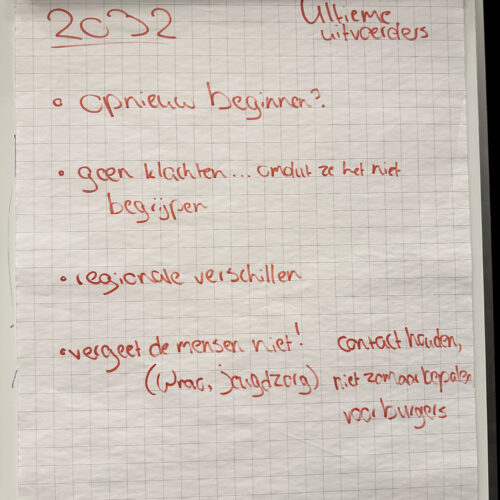 2032
Ultieme
uitvoerders
opnieuw beginnen?
geen klachten... omdat ze het niet
begrijpen
regionale verschillen
vergeet de mensen niet! contact houden,
(Wrac, jeugdzorg) niet zomaar bepalen
voor burgers